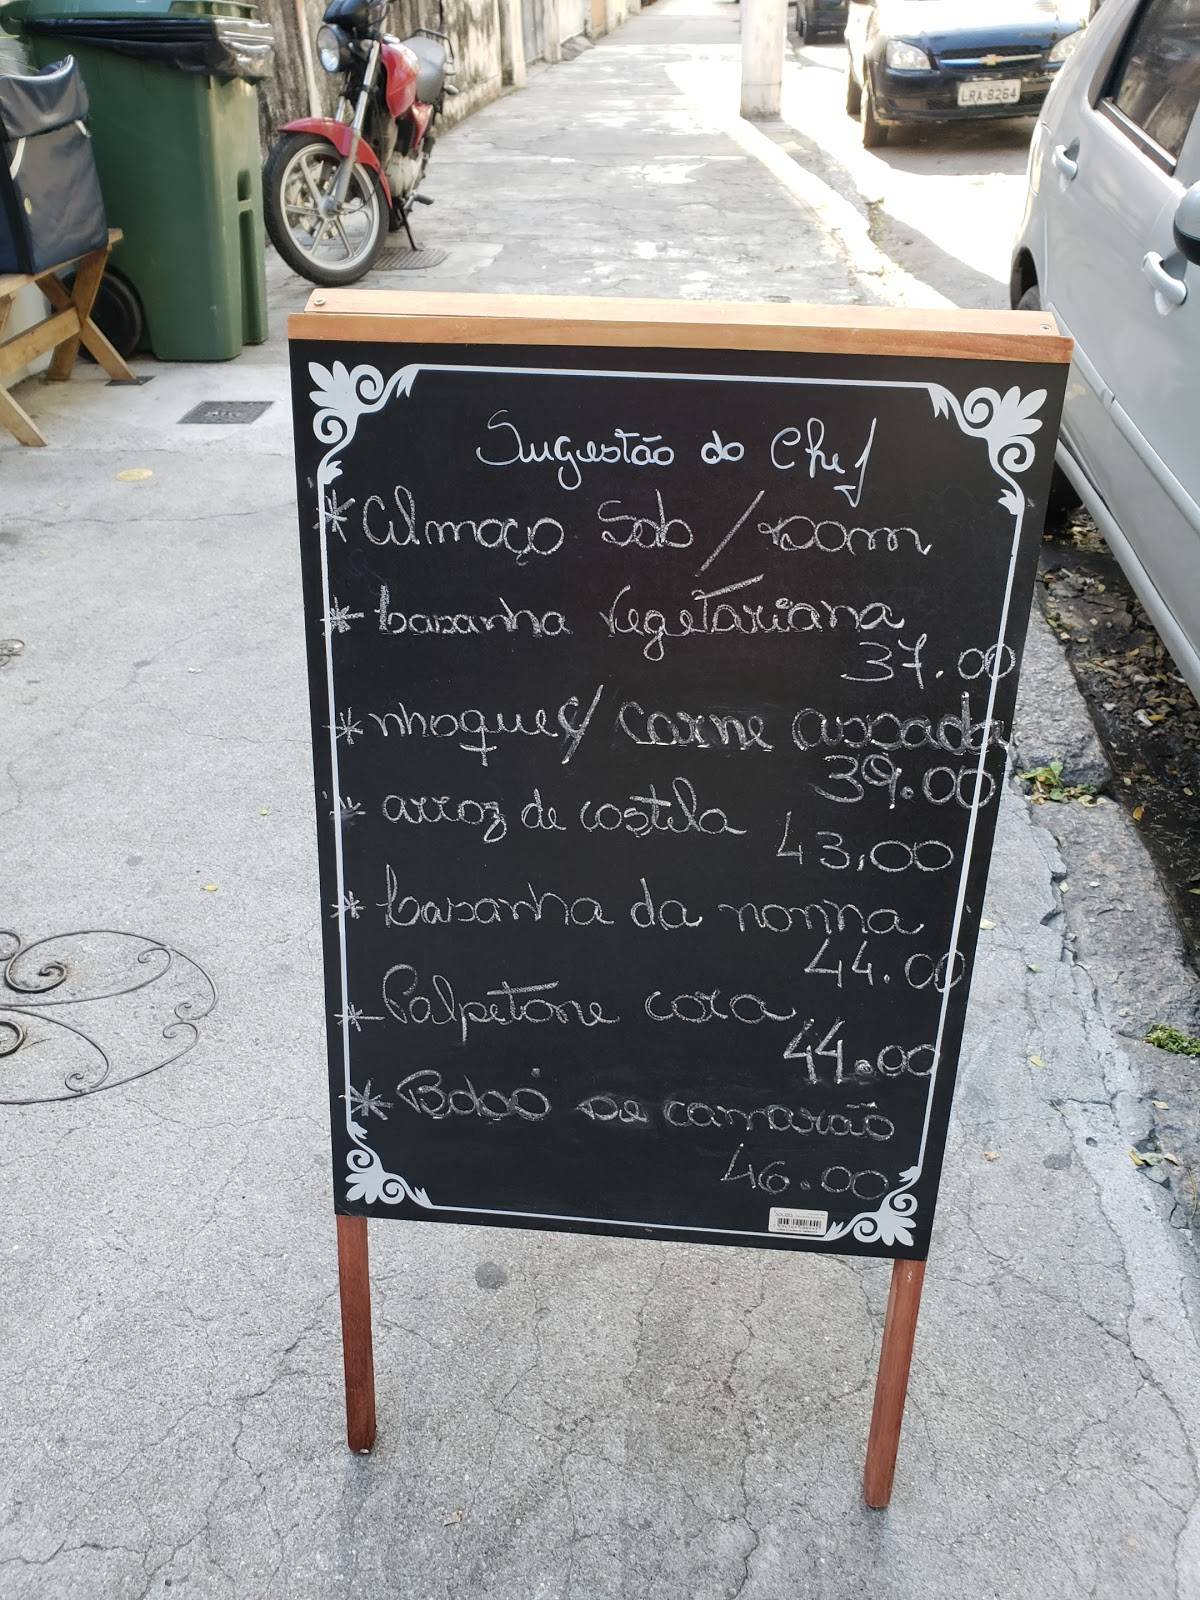 LRA-8264
Sugestão do Chef
* Almoço Sab / Dom
* Lasanha Vegetariana
37.00
* nhoque c/ carne assada
39.00
* arroz de costela
43,00
* Lasanha da nonna
44.00
* Polpetone cora
44.00
* Bobó de camarão
46.00